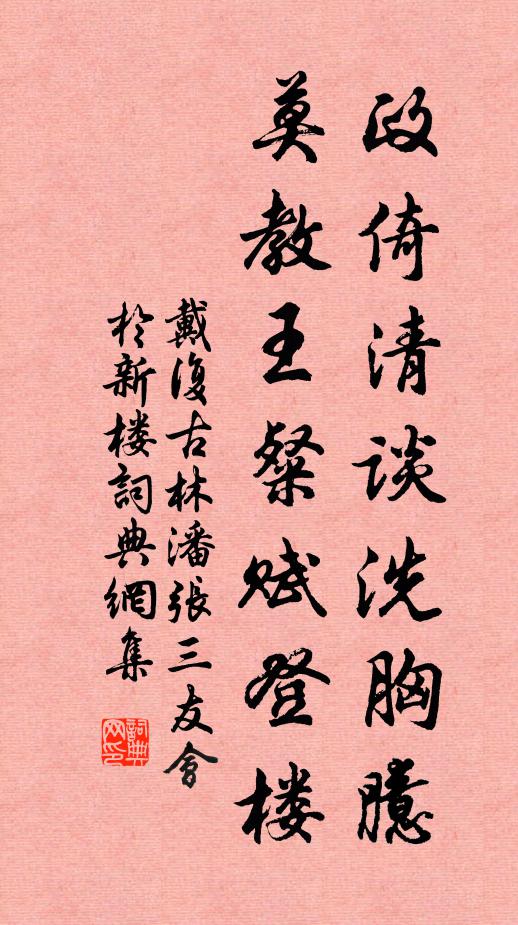 政倚清谈洗胸臆
莫教王粲赋登楼
戴復古林潘張三友會
於新楼詞典網集
詞典网印